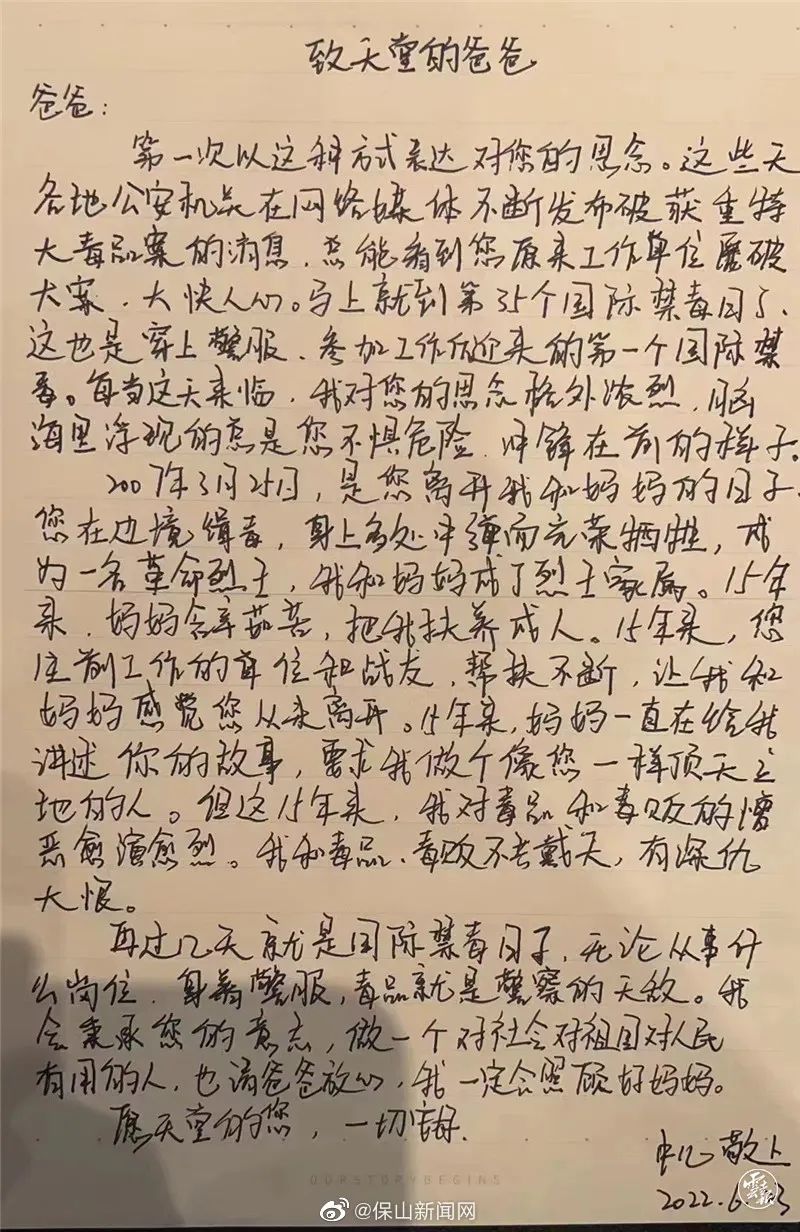 致天堂的爸爸
爸爸：
第一次以这种方式表达对您的思念。这些天
各地公安机关在网络媒体不断发布破获重特
大毒品案的消息，总能看到您原来工作单位屡破
大案，大快人心。马上就到第35个国际禁毒日了，
这也是穿上警服、参加工作后迎来的第一个国际禁
毒。每当这天来临，我对您的思念格外浓烈，脑
海里浮现的总是您不惧危险、冲锋在前的样子。
2007年3月25日，是您离开我和妈妈的日子，
您在边境缉毒，身上多处中弹而光荣牺牲，成
为一名革命烈士，我和妈妈成了烈士家属。15年
来，妈妈含辛茹苦，把我扶养成人。15年来，您
生前工作的单位和战友，帮扶不断，让我和
妈妈感觉您从未离开。15年来，妈妈一直在给我
讲述你的故事，要求我做个像您一样顶天立
地的人。但这15年来，我对毒品和毒贩的憎
恶愈演愈烈。我和毒品、毒贩不共戴天，有深仇
大恨。
再过几天就是国际禁毒日子，无论从事什
么岗位，身着警服，毒品就是警察的天敌。我
会秉承您的意志，做一个对社会对祖国对人民
有用的人，也请爸爸放心，我一定会照顾好妈妈。
愿天堂的您，一切安好。
敬上
2022.6.
OURSTORYBEGINS
@保山新闻网